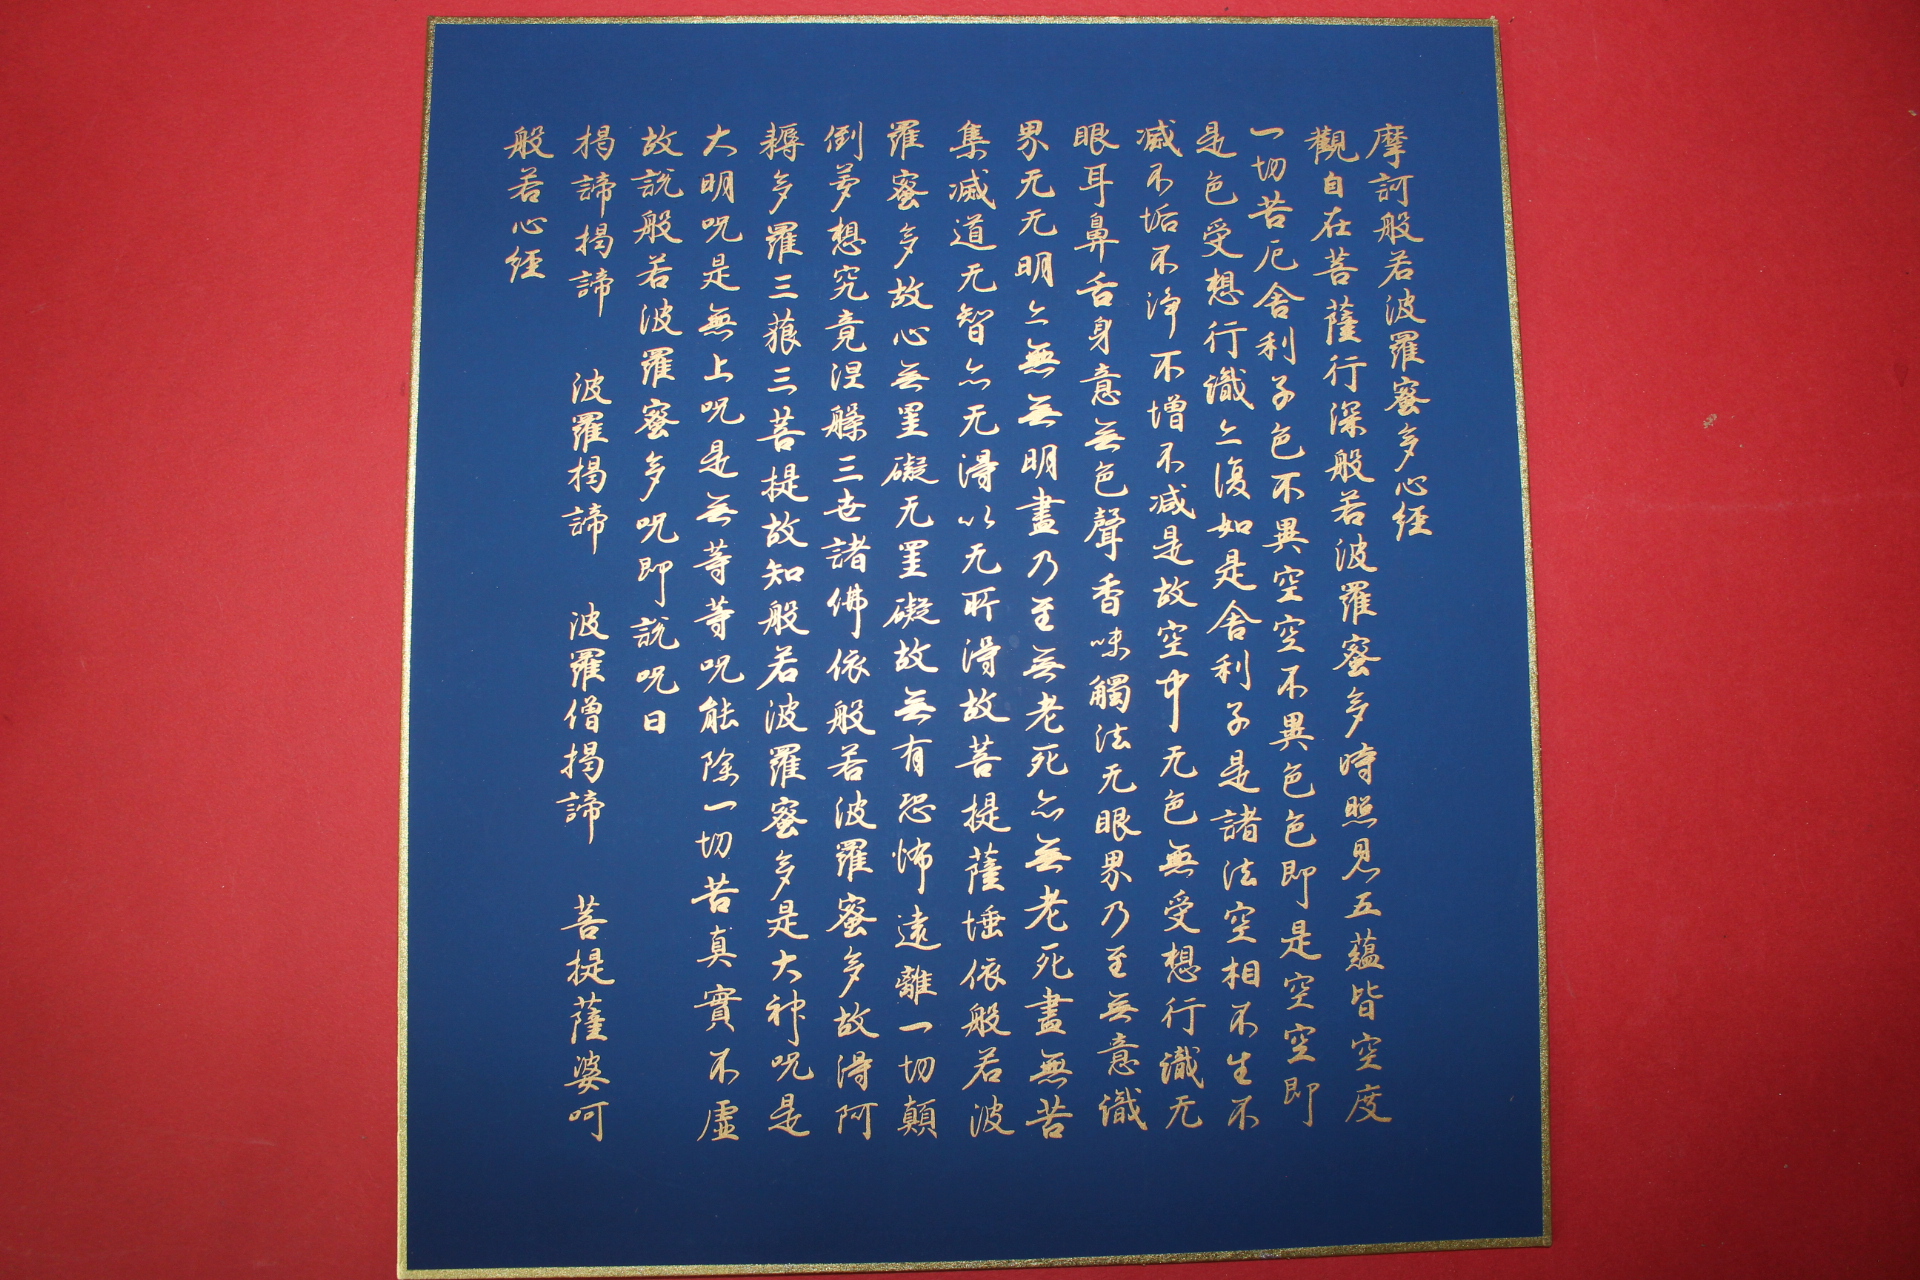 摩訶般若波羅蜜多心経
觀自在菩薩行深般若波羅蜜多時照見五蘊皆空度
一切苦厄舎利子色不異空空不異色色即是空空即
是色受想行識亦復如是舎利子是諸法空相不生不
滅不垢不浄不増不減是故空中无色無受想行識无
眼耳鼻舌身意無色聲香味觸法无眼界乃至無意識
界无无明亦無無明盡乃至無老死亦無老死盡無苦
集滅道无智亦无得以无所得故菩提薩埵依般若波
羅蜜多故心無罣礙无罣礙故無有恐怖遠離一切顛
倒夢想究竟涅槃三世諸佛依般若波羅蜜多故得阿
耨多羅三藐三菩提故知般若波羅蜜多是大神呪是
大明呪是無上呪是無等等呪能除一切苦真實不虚
故説般若波羅蜜多呪即説呪曰
揭諦揭諦 波羅揭諦 波羅僧揭諦 菩提薩婆呵
般若心経